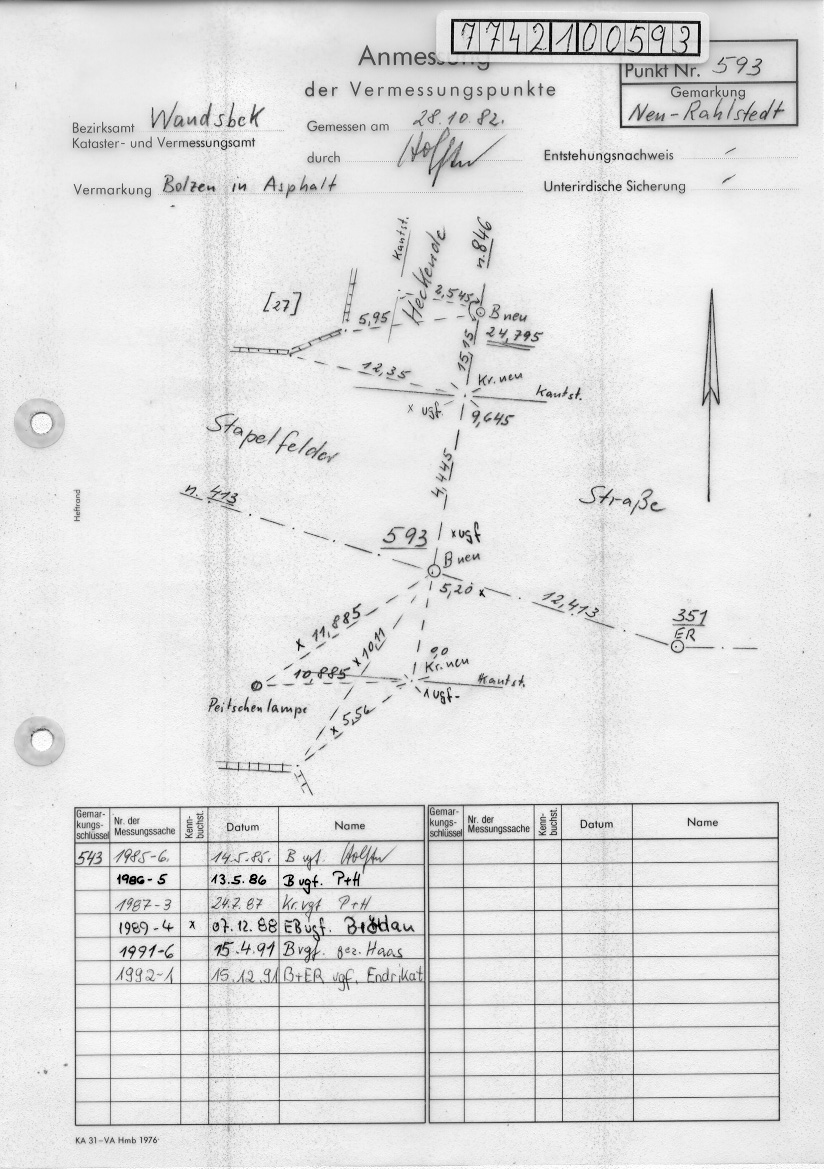 7742100593
Anmessung
der Vermessungspunkte
Punkt Nr. 593
Gemarkung
Neu-Rahlstedt
Bezirksamt Wandsbek
Kataster- und Vermessungsamt
Gemessen am 28.10.82.
durch
Entstehungsnachweis –
Vermarkung Bolzen in Asphalt
Unterirdische Sicherung –
Kantst.
Heckende
n. 846
[27]
2,545
5,95
B neu
24,795
15,15
12,35
Kr. neu
Kantst.
x vgf.
9,645
Stapelfelder
4,445
Straße
n. 413
593
x vgf
B neu
5,20 x
12,413
351
ER
x 11,885
x 10,11
0,0
Kr. neu
10,885
Kantst.
1 vgf.
Peitschenlampe
x 5,56
Heftrand
Gemar-
kungs-
schlüssel
Nr. der
Messungssache
Kenn-
buchst.
Datum
Name
Gemar-
kungs-
schlüssel
Nr. der
Messungssache
Kenn-
buchst.
Datum
Name
543 1985-6. 14.5.85. B vgf.
1986-5 13.5.86 B vgf. P+H
1987-3 24.7.87 Kr. vgf P+H
1989-4 x 07.12.88 EB vgf.
1991-6 15.4.91 B vgf. gez. Haas
1992-1 15.12.91 B+ER vgf. Endrikat
KA 31–VA Hmb 1976